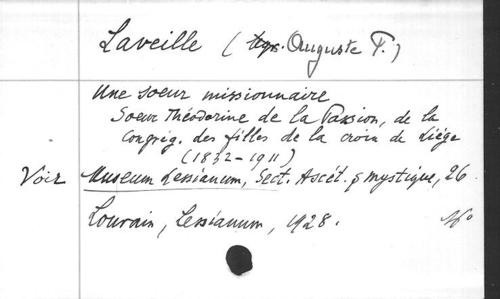 Laveille (Mgr. Auguste P.)
Une soeur missionnaire
Soeur Théodorine de la Passion, de la
Congrég. des filles de la croix de Liége
(1832-1911)
Voir Museum Lessianum, Sect. Ascét. & mystique, 26
Louvain, Lessianum, 1928.